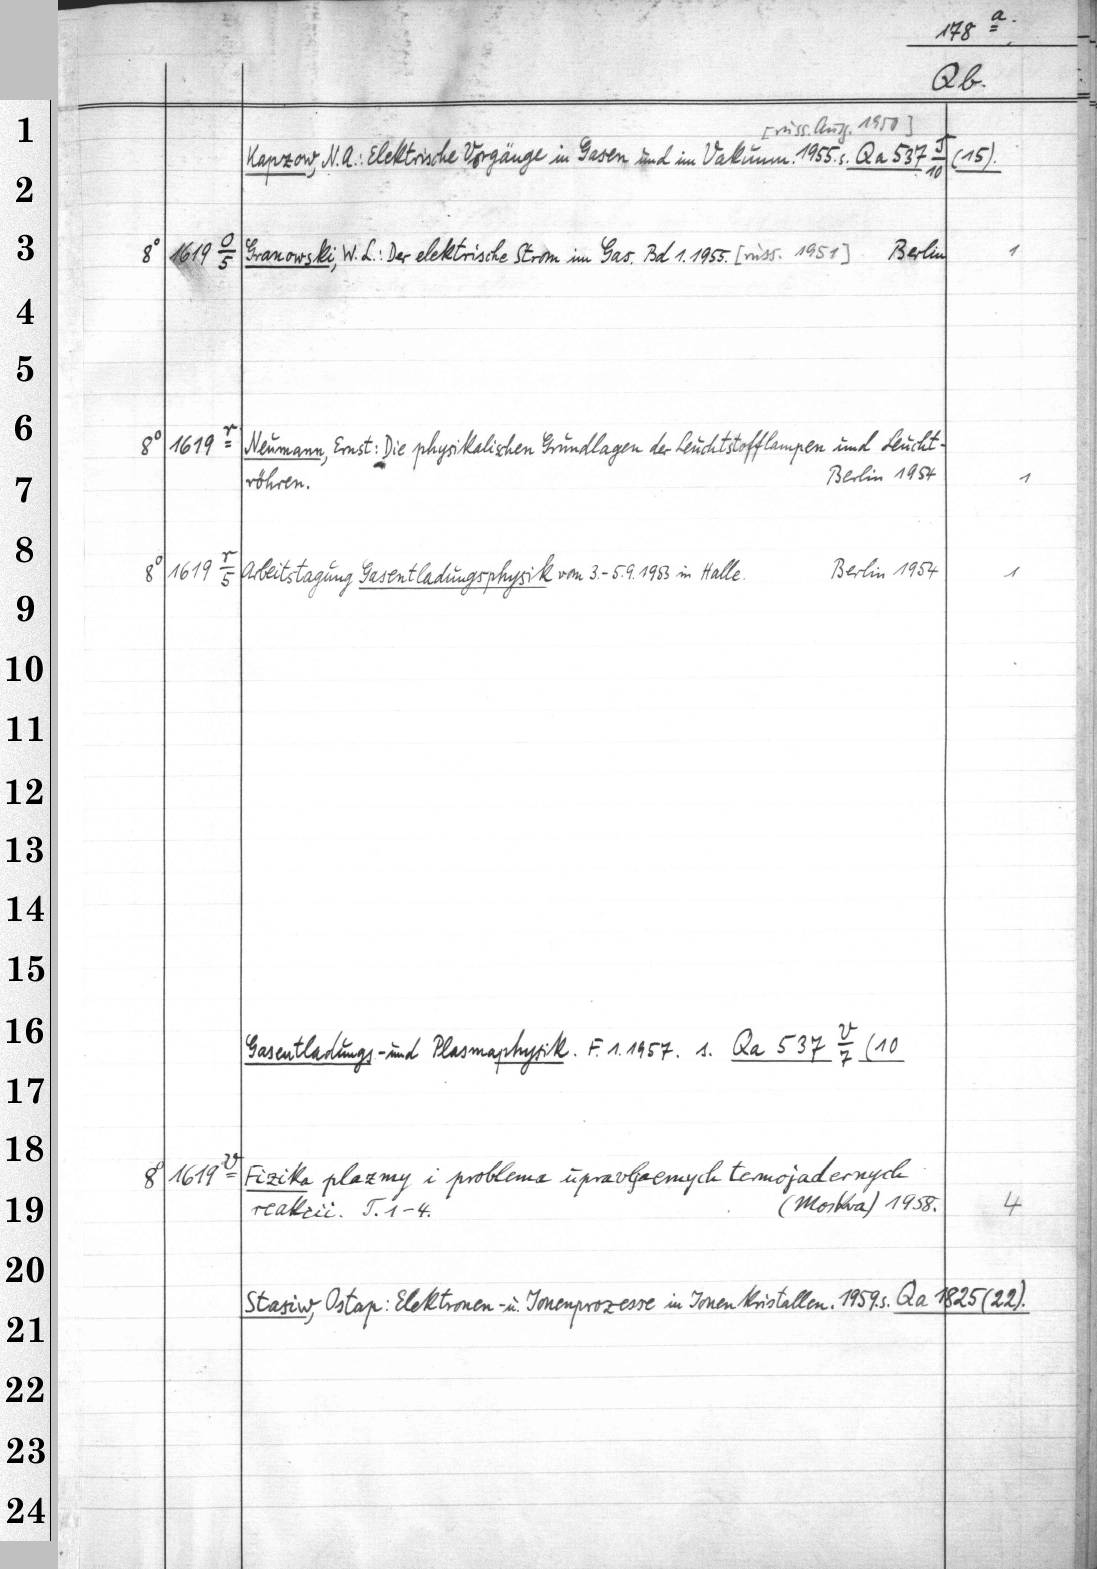 178 a.
Qb.
1
[russ. Ausg. 1950]
Kapzow, N.A.: Elektrische Vorgänge in Gasen und im Vakuum. 1955. s. Qa 537 5/10 (15).
2
3
8° 1619 0/5 Granowski, W. L.: Der elektrische Strom im Gas. Bd 1. 1955. [russ. 1951] Berlin 1
4
5
6
8° 1619 r Neumann, Ernst: Die physikalischen Grundlagen der Leuchtstofflampen und Leucht-
7
röhren. Berlin 1954 1
8
8° 1619 r/5 Arbeitstagung Gasentladungsphysik vom 3.-5.9.1953 in Halle. Berlin 1954 1
9
10
11
12
13
14
15
16
Gasentladungs- und Plasmaphysik. F. 1. 1957. s. Qa 537 v/7 (10
17
18
8° 1619 v Fizika plazmy i problema upravljaemych termojadernych
19
reakcii. T. 1-4. (Moskva) 1958. 4
20
Stasiw, Ostap: Elektronen- u. Ionenprozesse in Ionenkristallen. 1959. s. Qa 1825 (22).
21
22
23
24